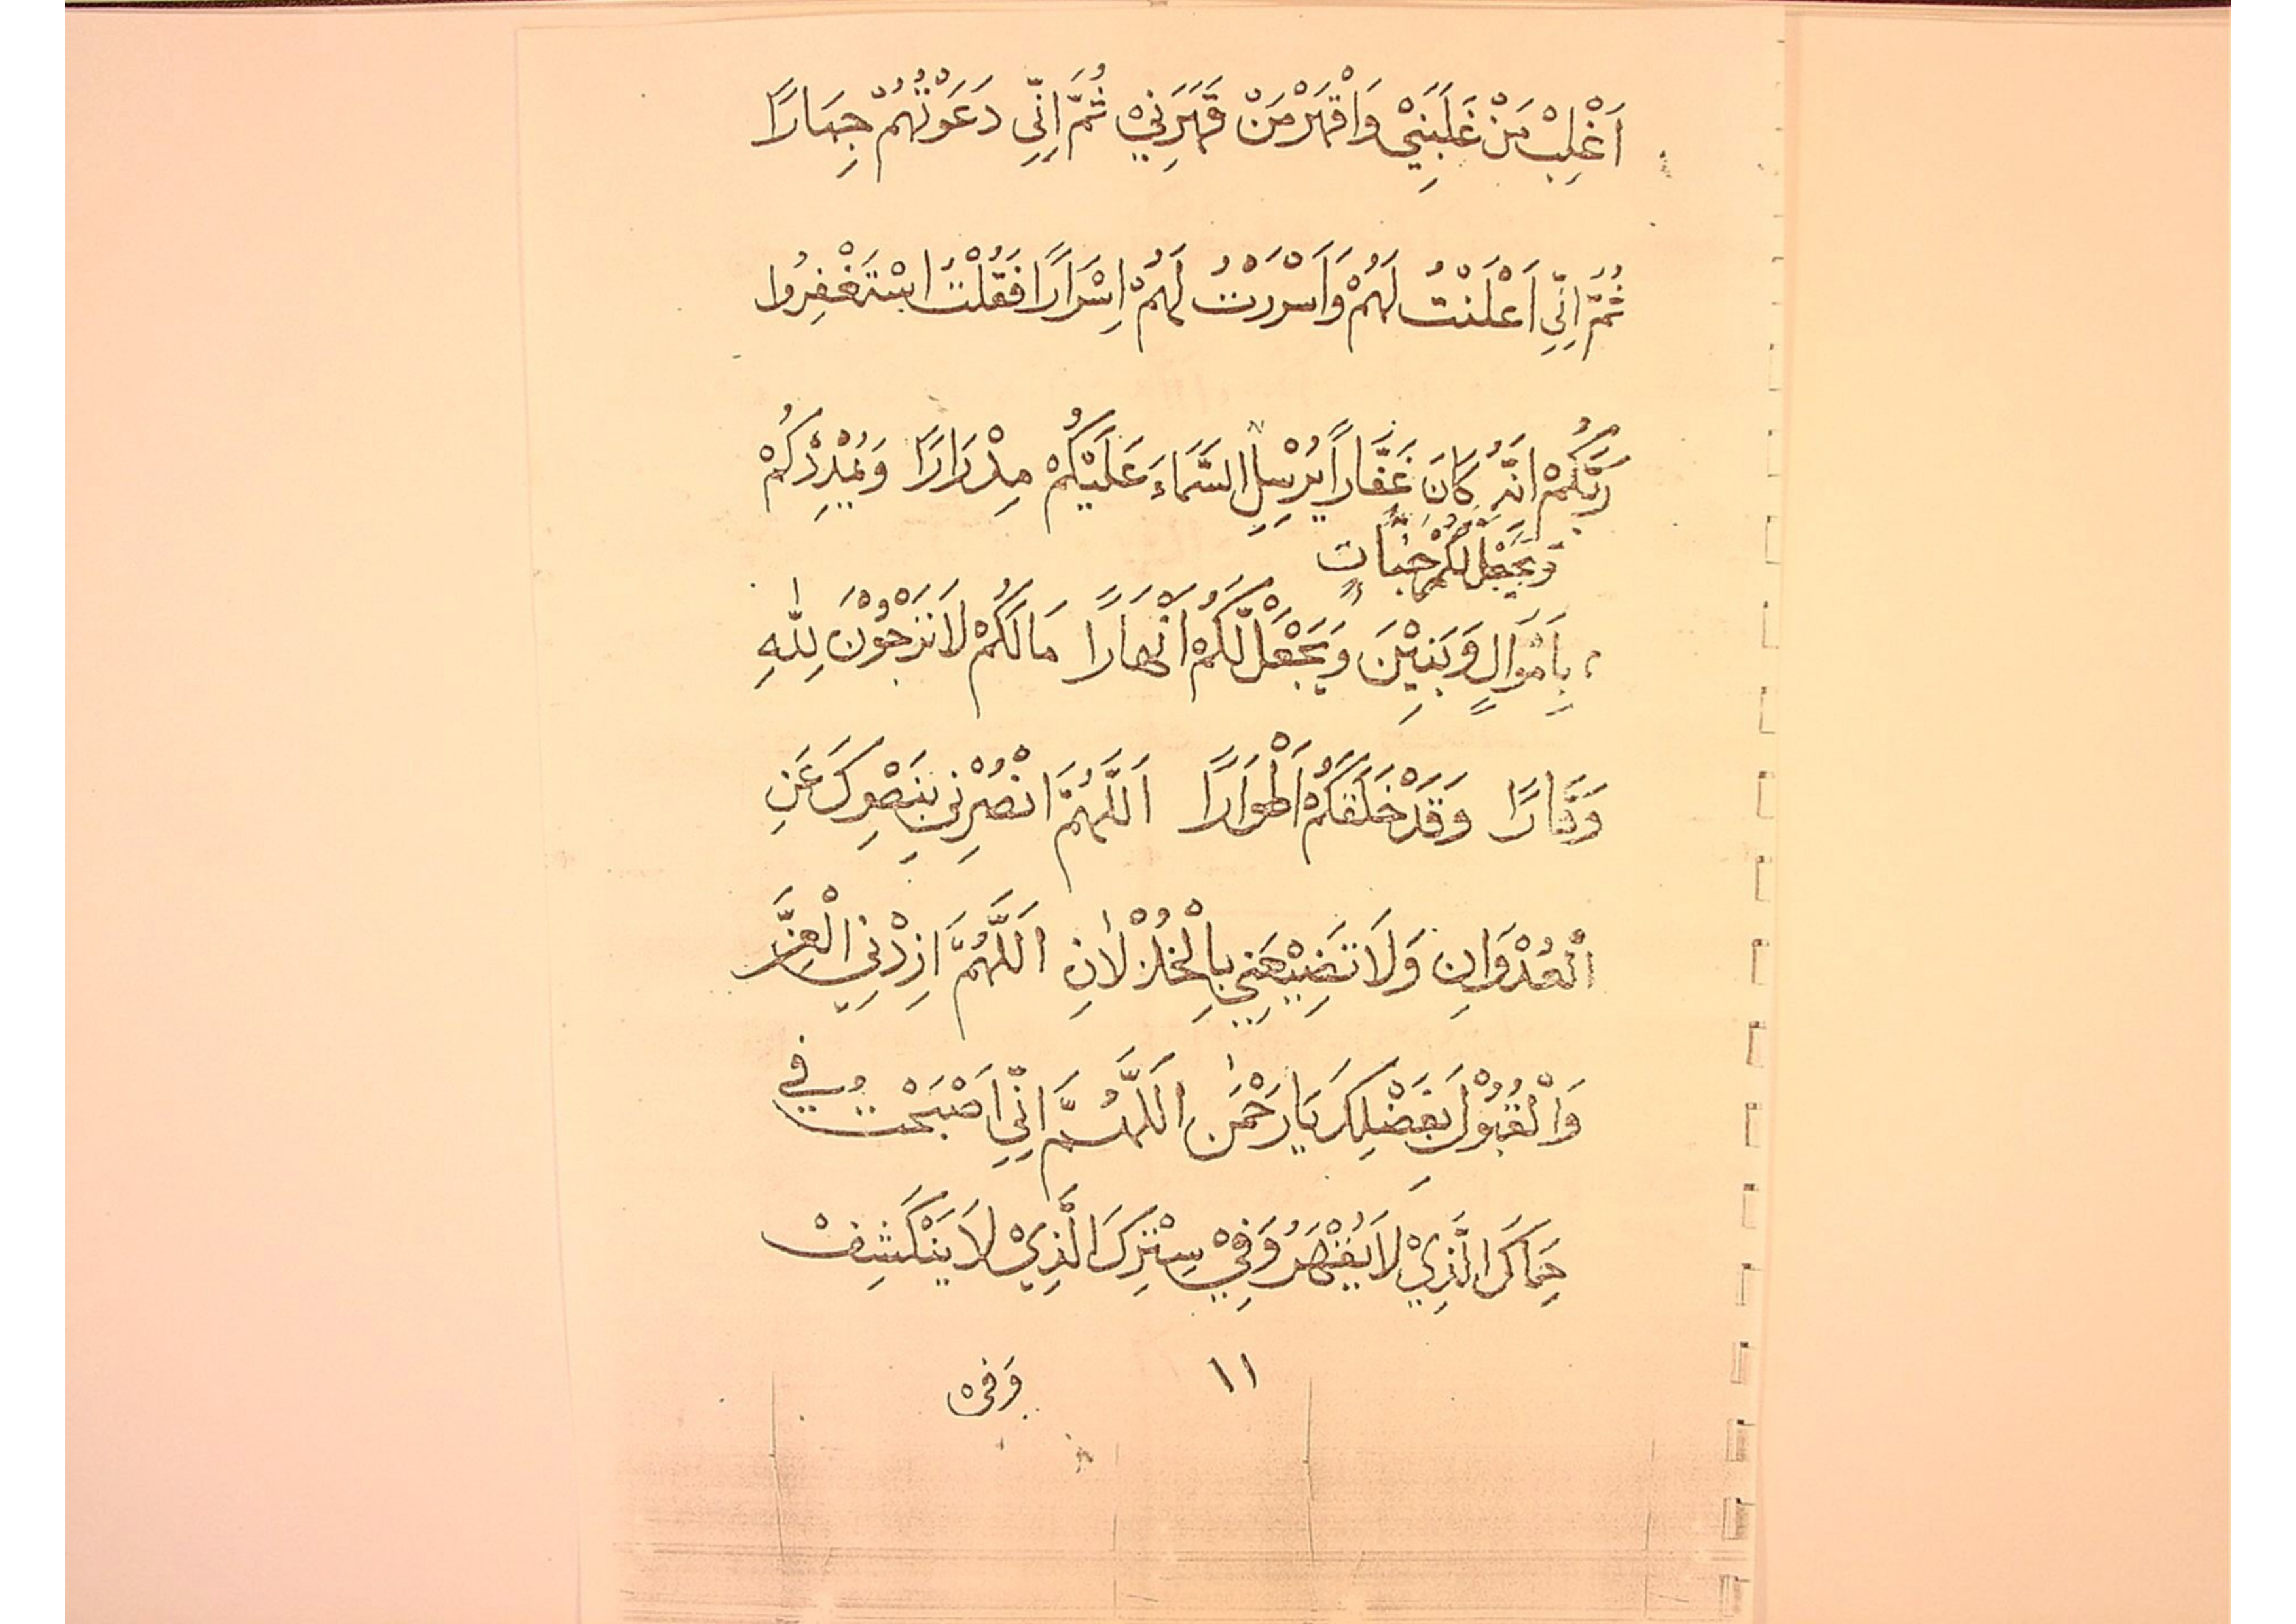 اَغْلِبْ مَنْ غَلَبَنِيْ وَاقْهَرْ مَنْ قَهَرَنِيْ ثُمَّ اِنِّي دَعَوْتُهُمْ جِهَارًا
ثُمَّ اِنِّي اَعْلَنْتُ لَهُمْ وَاَسْرَرْتُ لَهُمْ اِسْرَارًا فَقُلْتُ اسْتَغْفِرُوا
رَبَّكُمْ اِنَّهُ كَانَ غَفَّارًا يُرْسِلِ السَّمَاءَ عَلَيْكُمْ مِدْرَارًا وَيُمْدِدْكُمْ
وَيَجْعَلْ لَكُمْ جَنَّاتٍ
بِاَمْوَالٍ وَبَنِيْنَ وَيَجْعَلْ لَّكُمْ اَنْهَارًا مَالَكُمْ لَا تَرْجُوْنَ لِلّٰهِ
وَقَارًا وَقَدْ خَلَقَكُمْ اَطْوَارًا اَللَّهُمَّ انْصُرْنِي بِنَصْرِكَ عَنِ
الْعُدْوَانِ وَلَا تَضِيْعَنِي بِالْخُذْلَانِ اَللَّهُمَّ ازِدْنِي الْعِزَّ
وَالْقُبُوْلَ بِفَضْلِكَ يَا رَحْمٰنُ اَللَّهُمَّ اِنِّي اَصْبَحْتُ فِي
حِمَاكَ الَّذِيْ لَا يُقْهَرُ وَفِيْ سِتْرِكَ الَّذِيْ لَا يَنْكَشِفْ
١١ وَفِيْ